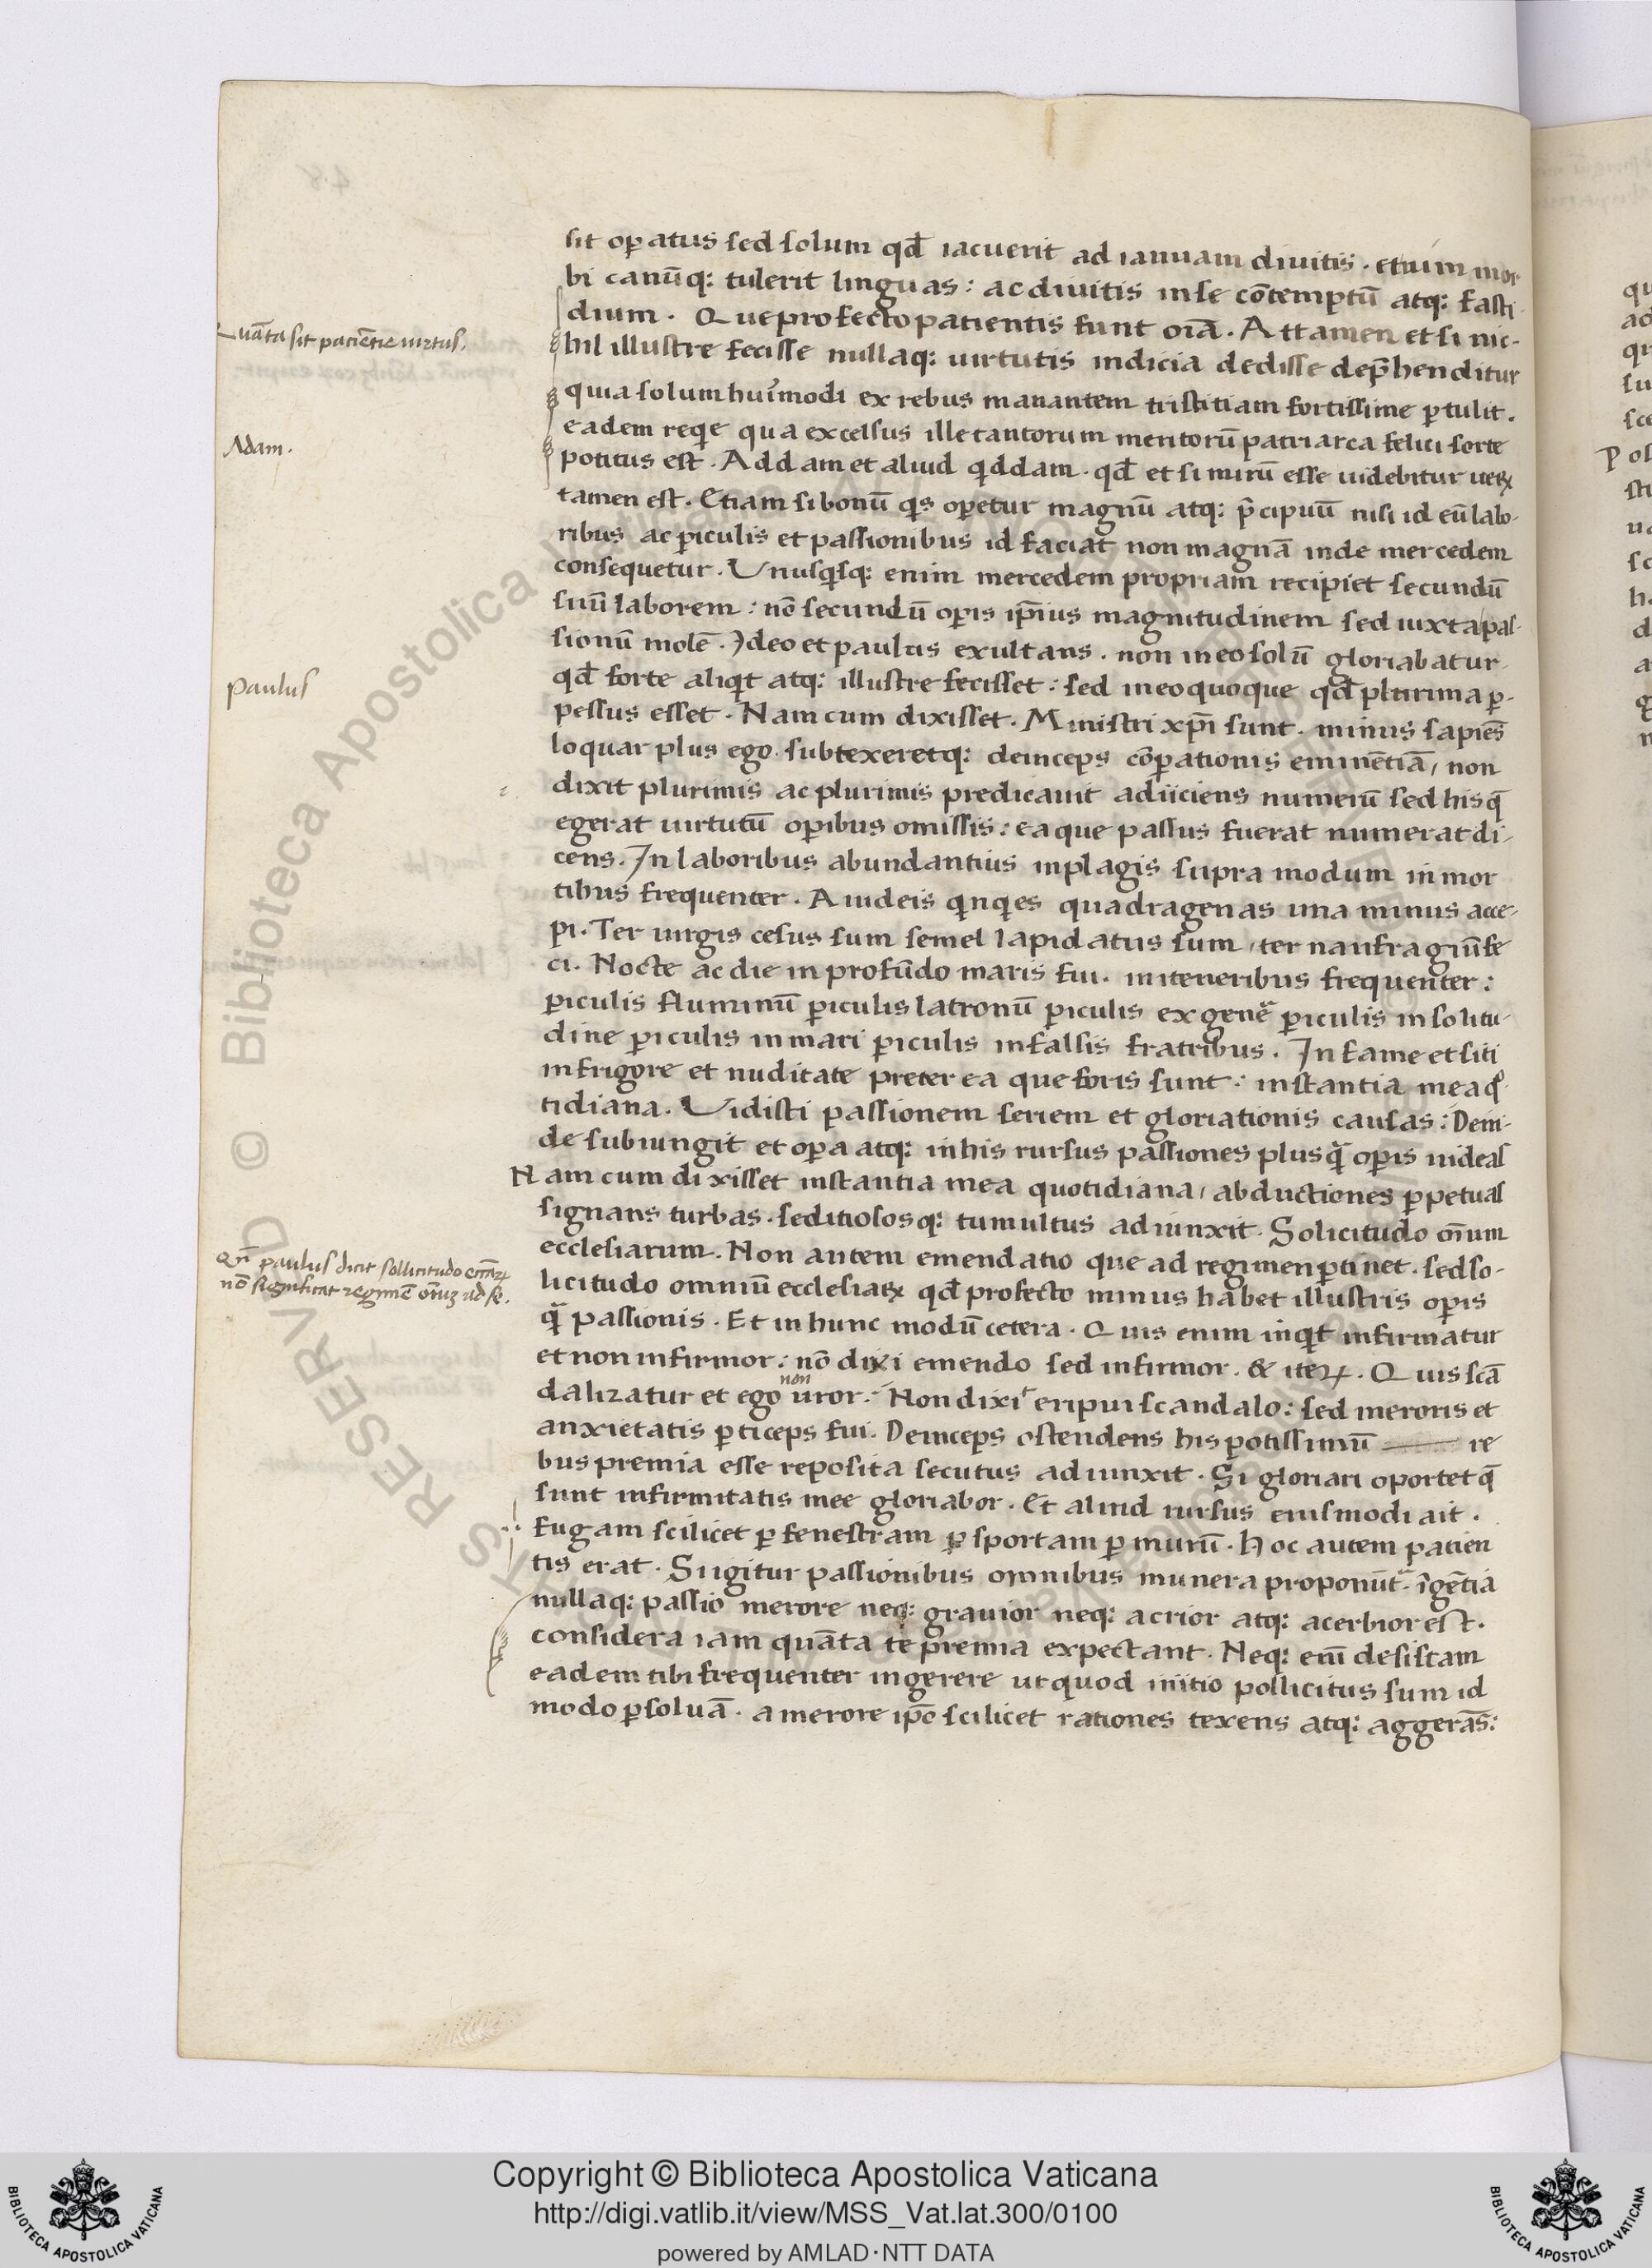 sit oꝑatus sed solum qd̄ iacuerit ad ianuam diuitis . et uim mor-
bi canūq; tulerit linguas : ac diuitis in se cōtemptū atq; fasti-
dium . Que profecto patientis sunt oīa . Attamen et si nic-
hil illustre fecisse nullaq; uirtutis indicia dedisse dep̄henditur
quia solum huiꝰmodi ex rebus manantem tristitiam fortissime ꝑtulit .
eadem reqͥe qua excelsus ille tantorum meritorū patriarca felici sorte
potitus est . Addam et aliud qͥddam . qd̄ et si mirū esse uidebitur ueꝝ
tamen est . Etiam si bonū qͥs oꝑetur magnū atq; p̄cipuū nisi id cū labo-
ribus ac ꝑiculis et passionibus id faciat non magnā inde mercedem
consequetur . Vnusqͥsq; enim mercedem propriam recipiet secundū
suū laborem : nō secundū oꝑis ip̄ius magnitudinem sed iuxta pas-
sionū molē . Ideo et paulus exultans . non in eo solū gloriabatur
qd̄ forte aliqͥt atq; illustre fecisset : sed in eo quoque qd̄ plurima ꝑ-
pessus esset . Nam cum dixisset . Ministri xp̄i sunt . minus sapiēs
loquar plus ego . subtexeretq; deinceps cōꝑationis eminētiā , non
dixit plurimis ac plurimis predicauit adiiciens numerū sed his q̄
egerat uirtutū oꝑibus omissis : ea que passus fuerat numerat di-
cens . In laboribus abundantius in plagis supra modum in mor
tibus frequenter . A iudeis qͥnqͥes quadragenas una minus acce-
pi . Ter uirgis cesus sum semel lapidatus sum , ter naufragiū fe
ci . Nocte ac die in profūdo maris fui . in iteneribus frequenter :
ꝑiculis fluminū ꝑiculis latronū ꝑiculis ex genē ꝑiculis in solitu-
dine ꝑiculis in mari ꝑiculis in falsis fratribus . In fame et siti
in frigore et nuditate preter ea que foris sunt : instantia mea qͦ
tidiana . Vidisti passionem seriem et gloriationis causas : Dein-
de subiungit et oꝑa atq; in his rursus passiones plusq̄ oꝑis uideas
Nam cum dixisset instantia mea quotidiana , abductiones ꝑpetuas
signans turbas . seditiosos q; tumultus adiunxit . Solicitudo om̄ium
ecclesiarum . Non autem emendatio que ad regimen ꝑtinet . sed so-
licitudo omniū ecclesiaꝝ qd̄ profecto minus habet illustris oꝑis
q̄ passionis . Et in hunc modū cetera . Quis enim inqͥt infirmatur
et non infirmor : nō dixi emendo sed infirmor . & iteꝝ . Quis scā
non
dalizatur et ego uror : Non dixit eripui scandalo : sed meroris et
anxietatis ꝑticeps fui . Deinceps ostendens his potissimū re
bus premia esse reposita secutus adiunxit . Si gloriari oportet q̄
sunt infirmitatis mee gloriabor . Et aliud rursus eiusmodi ait .
Fugam scilicet ꝑ fenestram ꝑ sportam ꝑ murū . Hoc autem patien
tis erat . Si igitur passionibus omnibus munera proponūt̄ . īgētia
nullaq; passio merore neq; grauior neq; acrior atq; acerbior est .
considera iam quāta te premia expectant . Neq; enī desistam
eadem tibi frequenter ingerere ut quod initio pollicitus sum id
modo ꝑsoluā . a merore ip̄o scilicet rationes texens atq; aggerās :
Quāta sit paciētie uirtus .
Adam .
paulus
Qn̄ paulus dicit sollicitudo eccl̄iaꝝ
nō significat regimē om̄iuꝫ ad se .
© Biblioteca Apostolica Vaticana
Copyright © Biblioteca Apostolica Vaticana
http://digi.vatlib.it/view/MSS_Vat.lat.300/0100
powered by AMLAD·NTT DATA
BIBLIOTECA APOSTOLICA VATICANA
BIBLIOTECA APOSTOLICA VATICANA